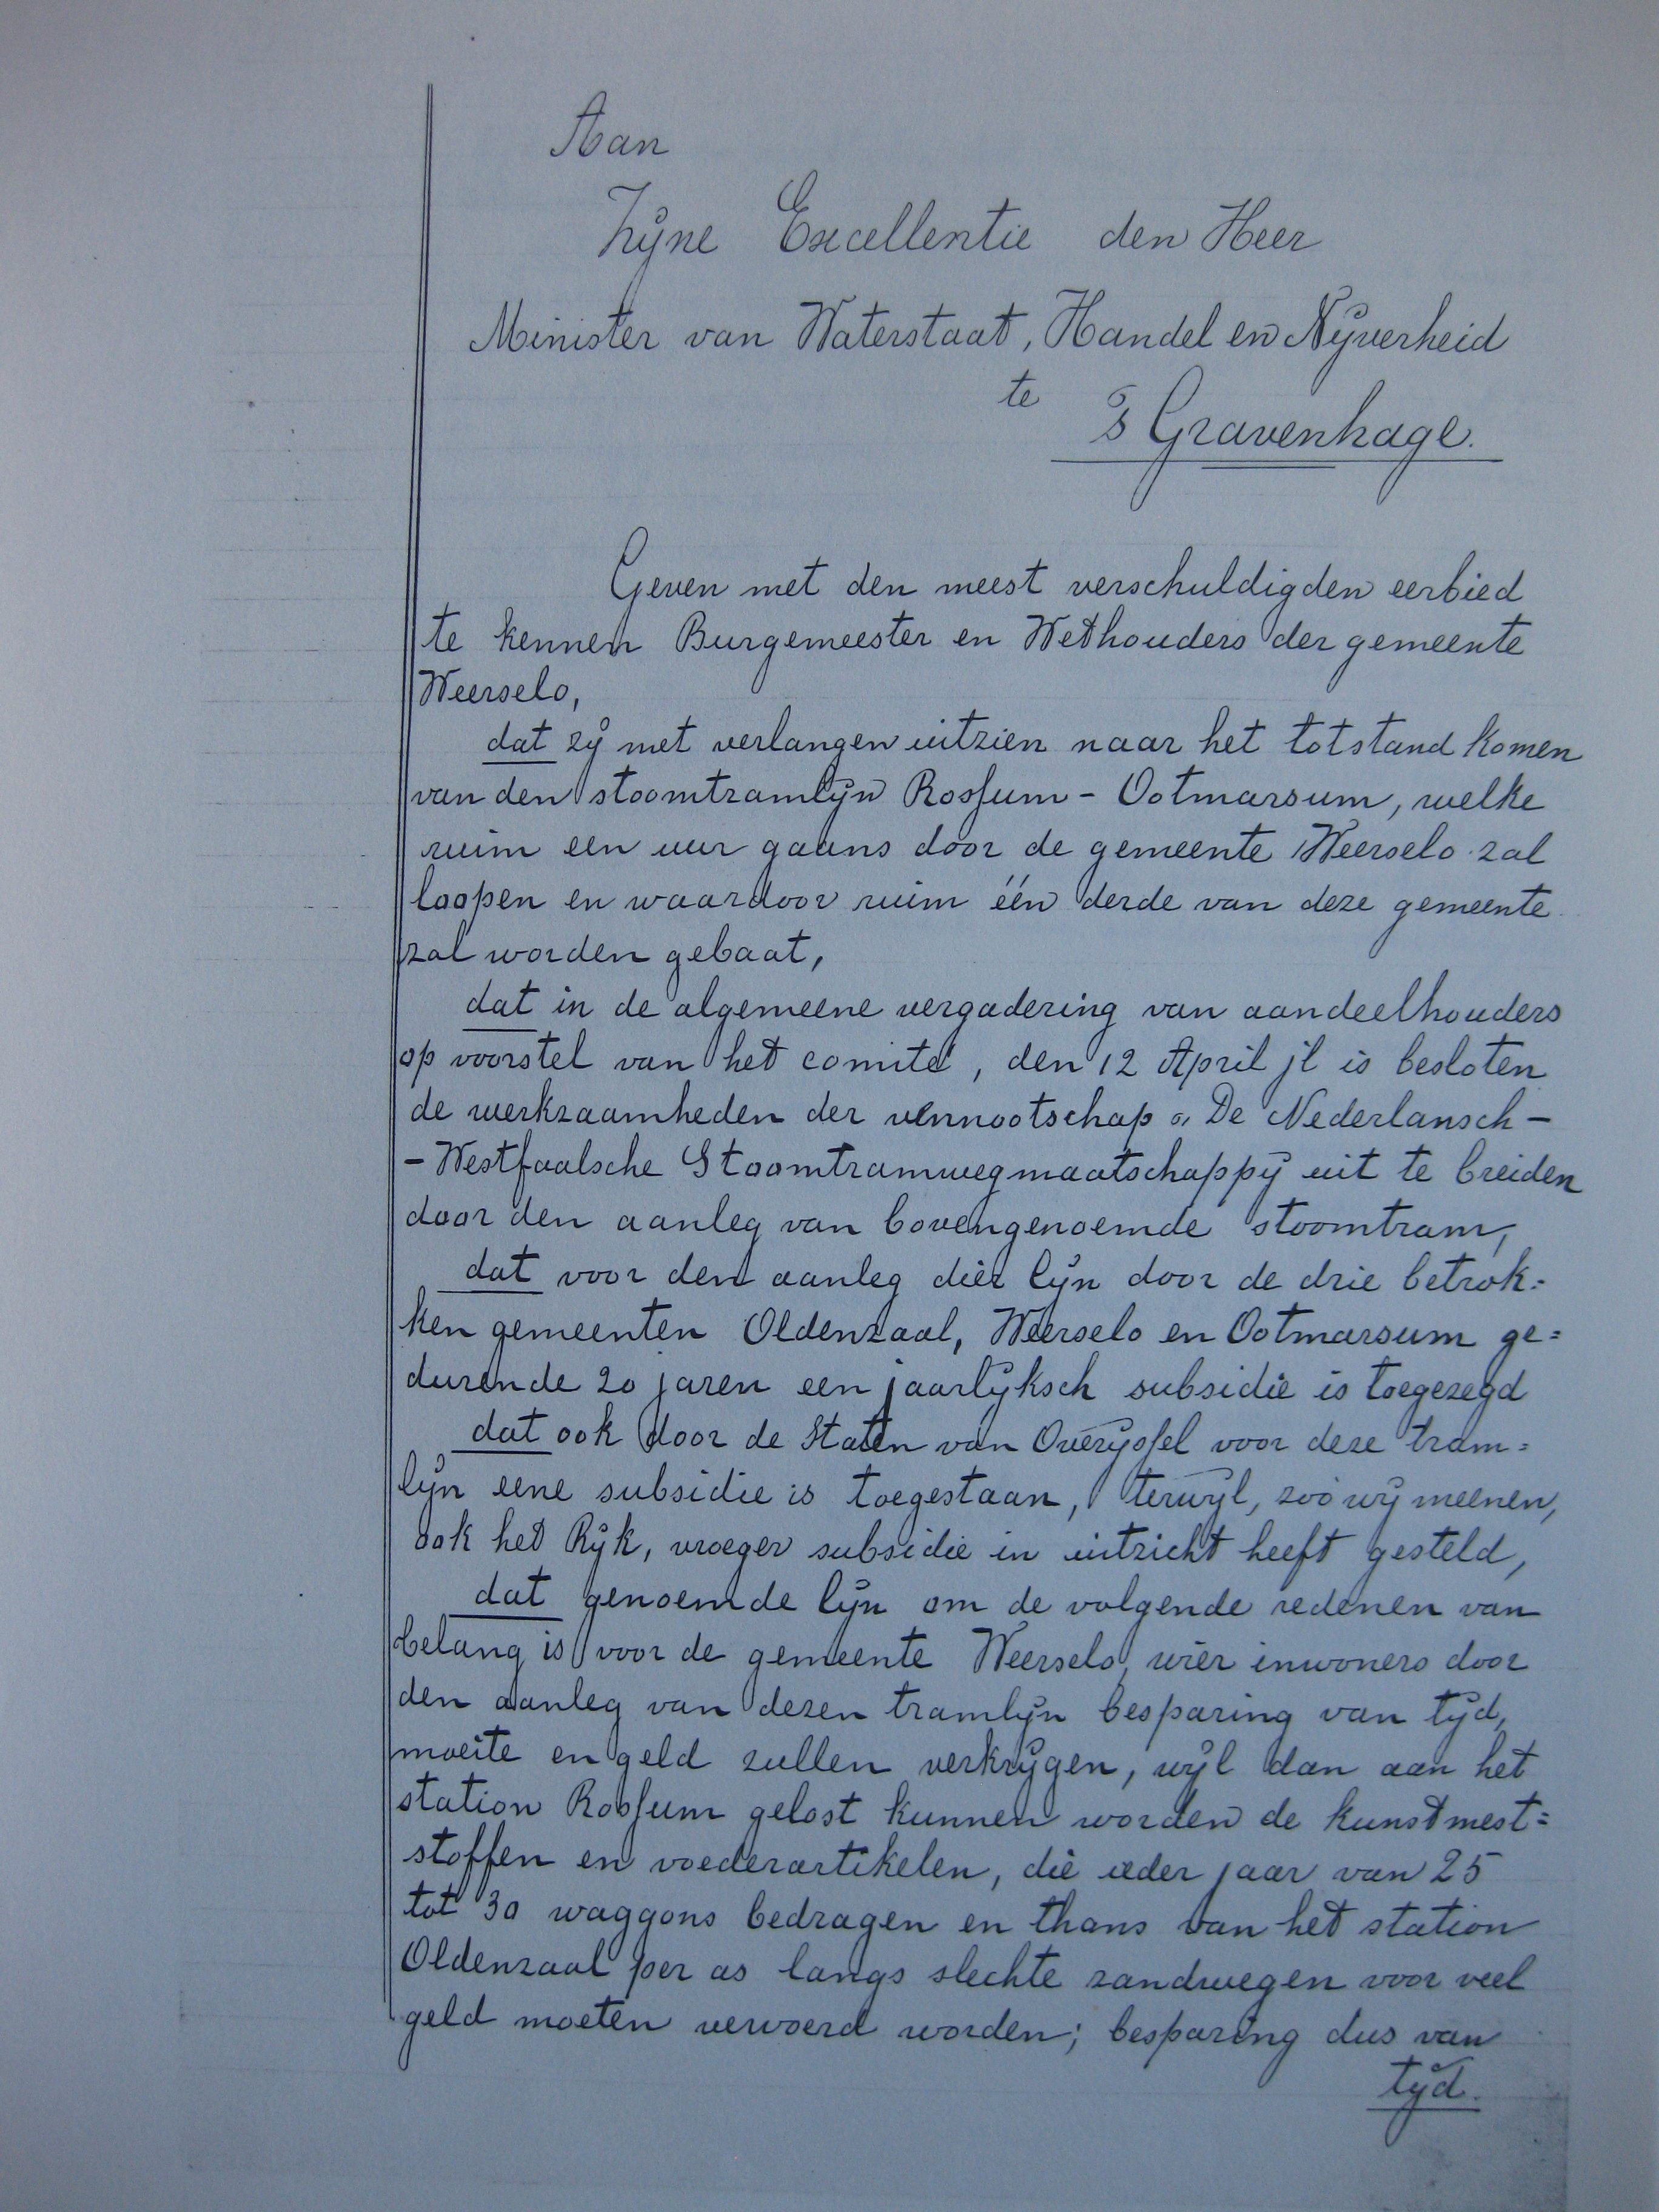 Aan
Zijne Excellentie den Heer
Minister van Waterstaat, Handel en Nijverheid
te
's Gravenhage.
Geven met den meest verschuldigden eerbied
te kennen Burgemeester en Wethouders der gemeente
Weerselo,
dat zij met verlangen uitzien naar het totstand komen
van den stoomtramlijn Rossum - Ootmarsum, welke
ruim een uur gaans door de gemeente Weerselo zal
loopen en waardoor ruim één derde van deze gemeente
zal worden gebaat,
dat in de algemeene vergadering van aandeelhouders
op voorstel van het comité, den 12 April jl is besloten
de werkzaamheden der vennootschap „ De Nederlansch -
- Westfaalsche Stoomtramwegmaatschappij uit te breiden
door den aanleg van bovengenoemde stoomtram,
dat voor den aanleg dier lijn door de drie betrok=
ken gemeenten Oldenzaal, Weerselo en Ootmarsum ge=
durende 20 jaren een jaarlijksch subsidie is toegezegd
dat ook door de Staten van Overijssel voor deze tram=
lijn eene subsidie is toegestaan, terwijl, zoo wij meenen,
ook het Rijk, vroeger subsidie in uitzicht heeft gesteld,
dat genoemde lijn om de volgende redenen van
belang is voor de gemeente Weerselo, wier inwoners door
den aanleg van dezen tramlijn besparing van tijd,
moeite en geld zullen verkrijgen, wijl dan aan het
station Rossum gelost kunnen worden de kunstmest=
stoffen en voederartikelen, die ieder jaar van 25
tot 30 waggons bedragen en thans van het station
Oldenzaal per as langs slechte zandwegen voor veel
geld moeten vervoerd worden; besparing dus van
tijd.